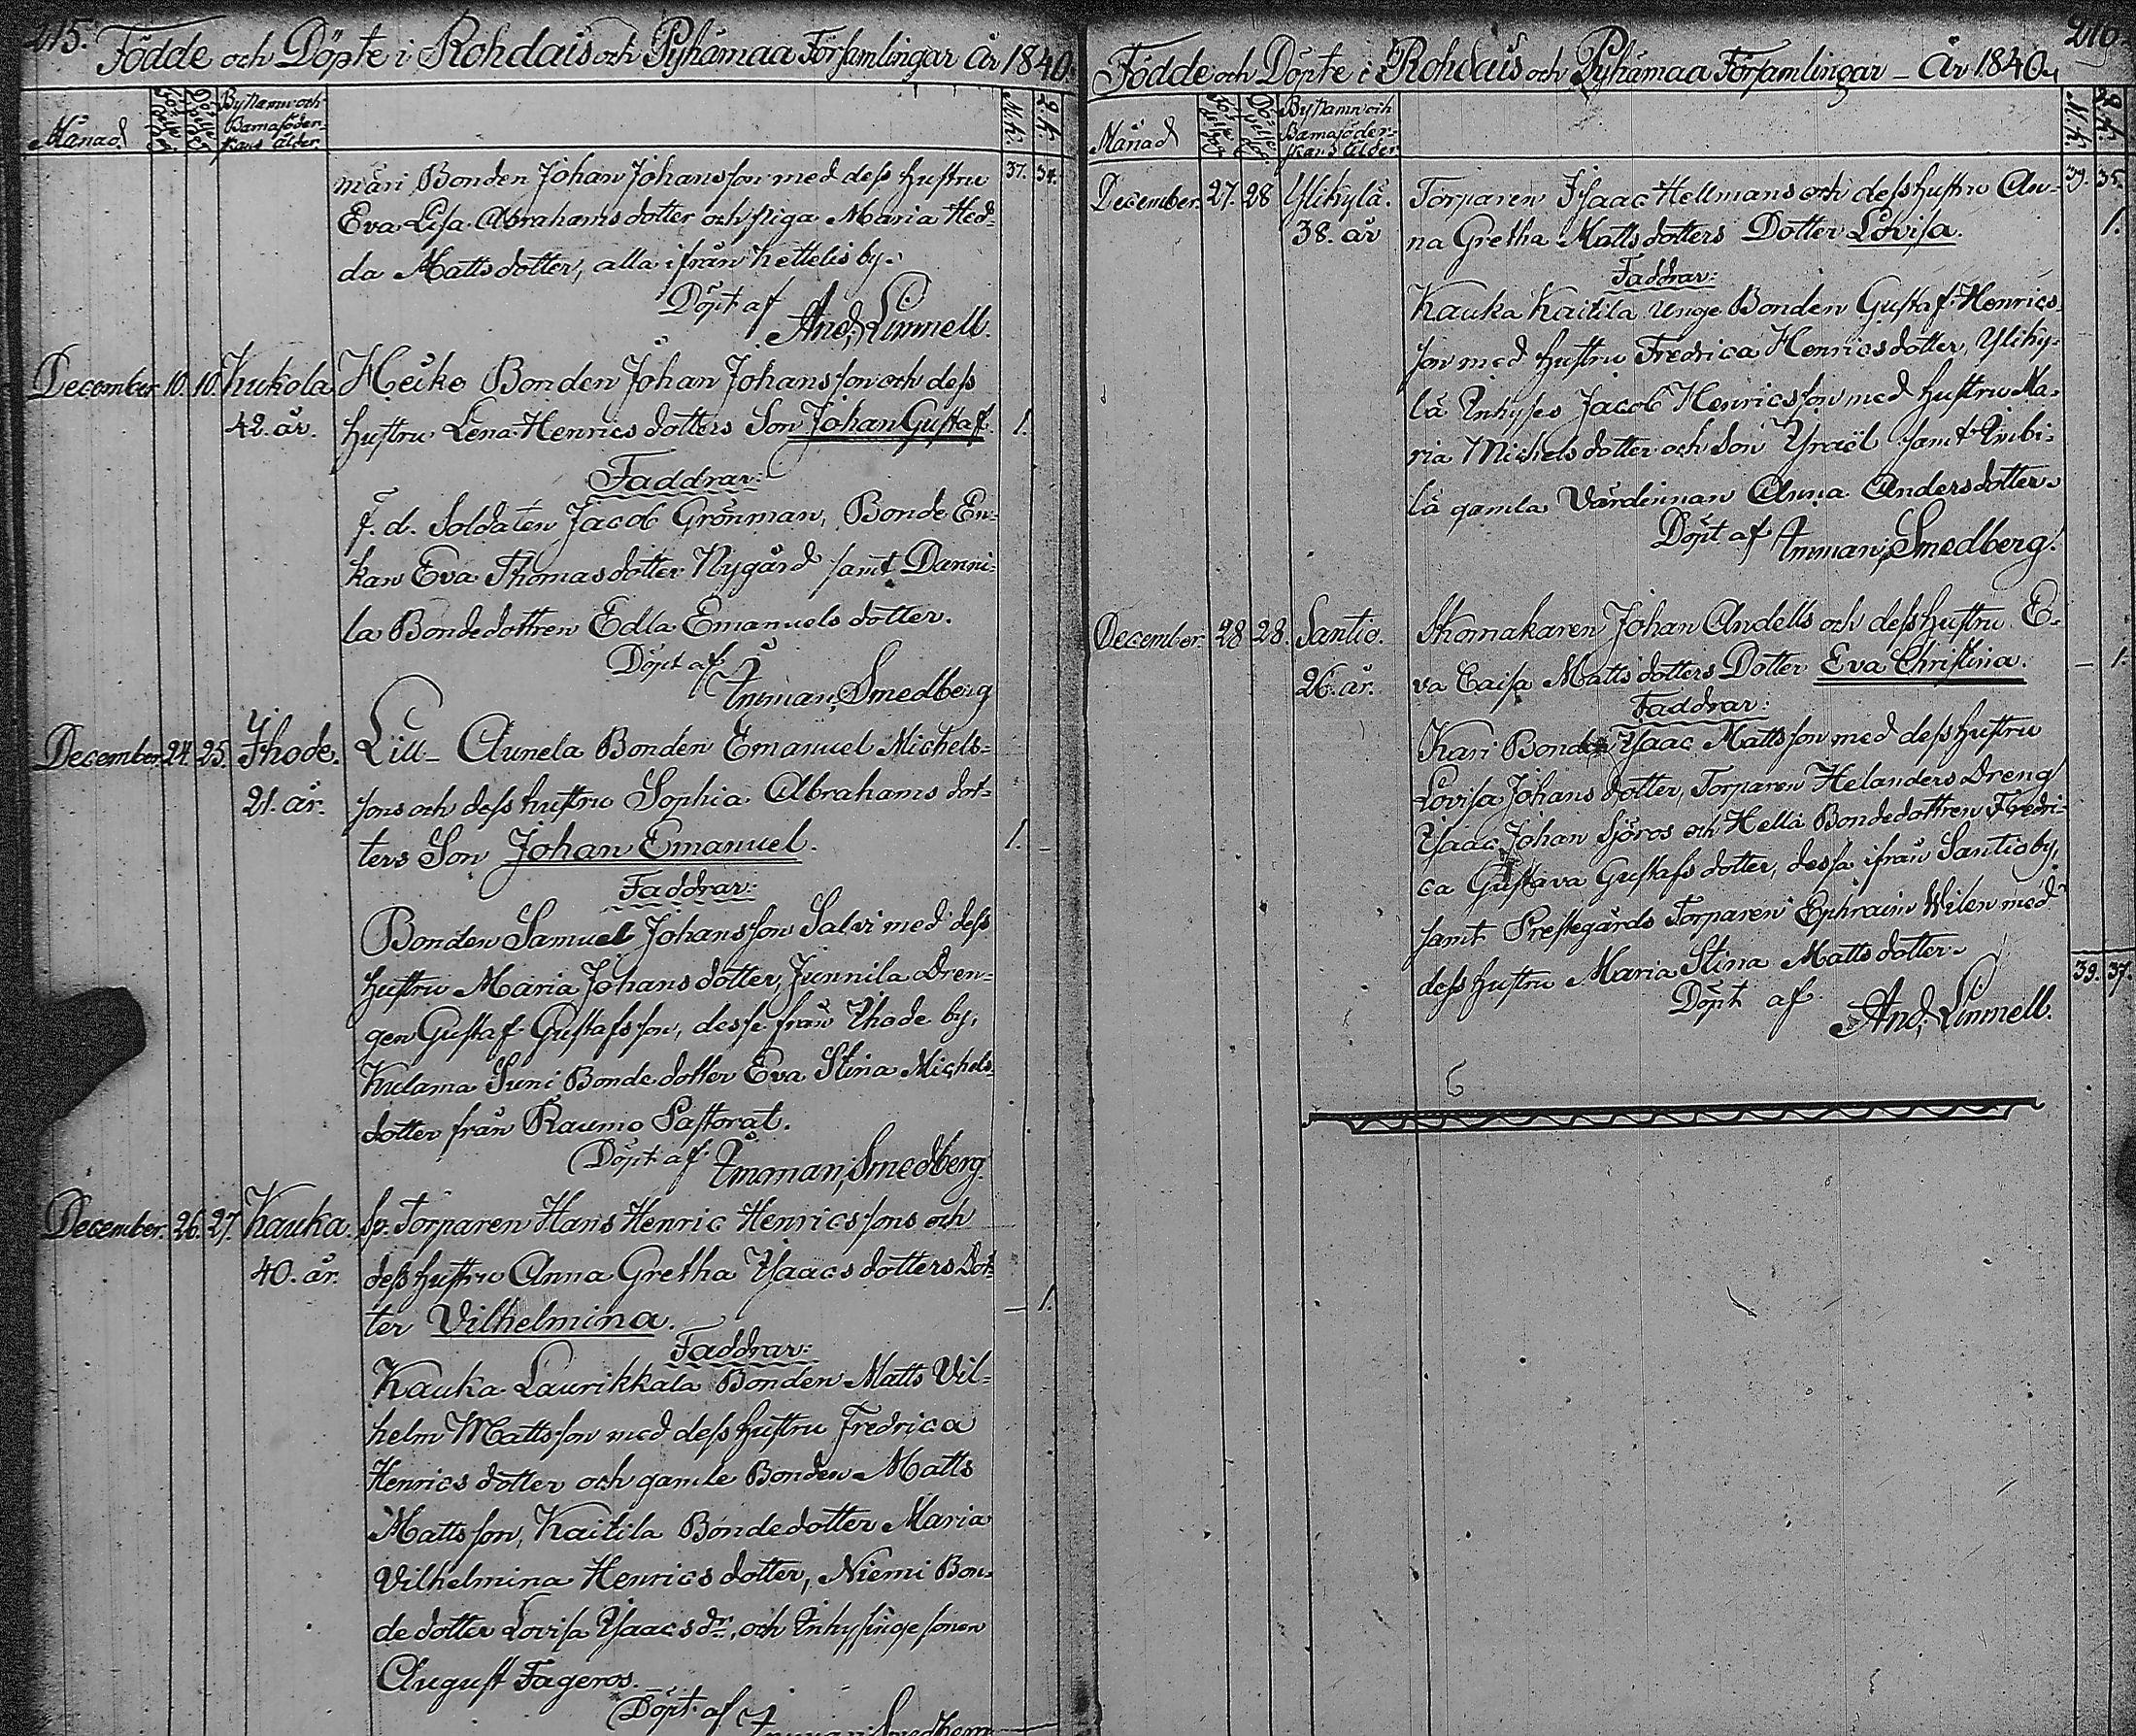 215.
Födde och Döpte i Rohdais och Pyhämaa Församlingar År 1840.
Månad.
By Namn och
Barnaföder-
skans ålder.
M.K.
Q.K.
37. 34.
märi Bonden Johan Johansson med dess hustru
Eva Lisa Abrahams dotter och piga Maria Hed-
da Matts dotter, alla ifrån Kettelis by.
Döpt af
And. Linnell.
December 10. 10. Kukola Heiko Bonden Johan Johanssons och dess
42. år. hustru Lena Henrics dotters Son Johan Gustaf. 1.
Faddrar:
f. d. Soldaten Jacob Grönman, Bonde En-
kan Eva Thomas dotter Nygård samt Danni-
la Bondedottren Edla Emanuels dotter.
Döpt af
Imman. Smedberg
December 24. 25. Ihode. Lill- Aunela Bonden Emanuel Michels-
21. år. sons och dess hustru Sophia Abrahams dot-
ters Son Johan Emanuel. 1.
Faddrar:
Bonden Samuel Johansson Salvi med dess
hustru Maria Johans dotter, Junnila Dren-
gen Gustaf Gustafsson, desse från Ihode by,
Kulama Suni Bonde dotter Eva Stina Michels-
dotter från Raumo Pastorat.
Döpt af Imman. Smedberg.
December. 26. 27. Kauka. Sv. Torparen Hans Henric Henricssons och
40. år. dess hustru Anna Gretha Ysaacs dotters Dot-
ter Vilhelmina. – 1.
Faddrar:
Kauka Laurikkala Bonden Matts Vil-
helm Mattsson med dess hustru Fredrica
Henrics dotter och gamle Bonden Matts
Mattsson, Kaitila Bondedotter Maria
Vilhelmina Henrics dotter, Niemi Bon-
de dotter Lovisa Ysaacs dr, och Inhysinge sonen
August Fageros.
Döpt af Imman. Smedberg
216.
Födde och Döpte i Rohdais och Pyhämaa Församlingar – År 1840.
Månad
By Namn och
Barnaföder-
skans ålder
M.K.
Q.K.
39. 35.
December. 27. 28 Ylikylä. Torparen Isaac Hellmans och dess hustru An-
38. år na Gretha Matts dotters Dotter Lovisa. 1.
Faddrar:
Kauka Kaitila unge Bonden Gustaf Henrics-
son med hustru Fredrica Henricsdotter, Yliky-
lä Inhyses Jacob Henricsson med hustru Ma-
ria Michels dotter och Son Ysraël samt
lä gamla Värdinnan Anna Anders dotter.
Döpt af Imman. Smedberg.
December. 28 28. Santio. Skomakaren Johan Andells och dess hustru E-
26. år. va Caisa Matts dotters Dotter Eva Christina. – 1.
Faddrar:
Kari Bonden Ysaac Mattsson med dess hustru
Lovisa Johans dotter, Torparen Helanders Dreng
Ysaac Johan Sjöros och Hellä Bondedottren Fredri-
ca Gustava Gustafs dotter, dessa ifrån Santio by,
samt Prestegårds Torparen Ephraim Wilen med
dess hustru Maria Stina Matts dotter.
39. 37.
Döpt af
And. Linnell.